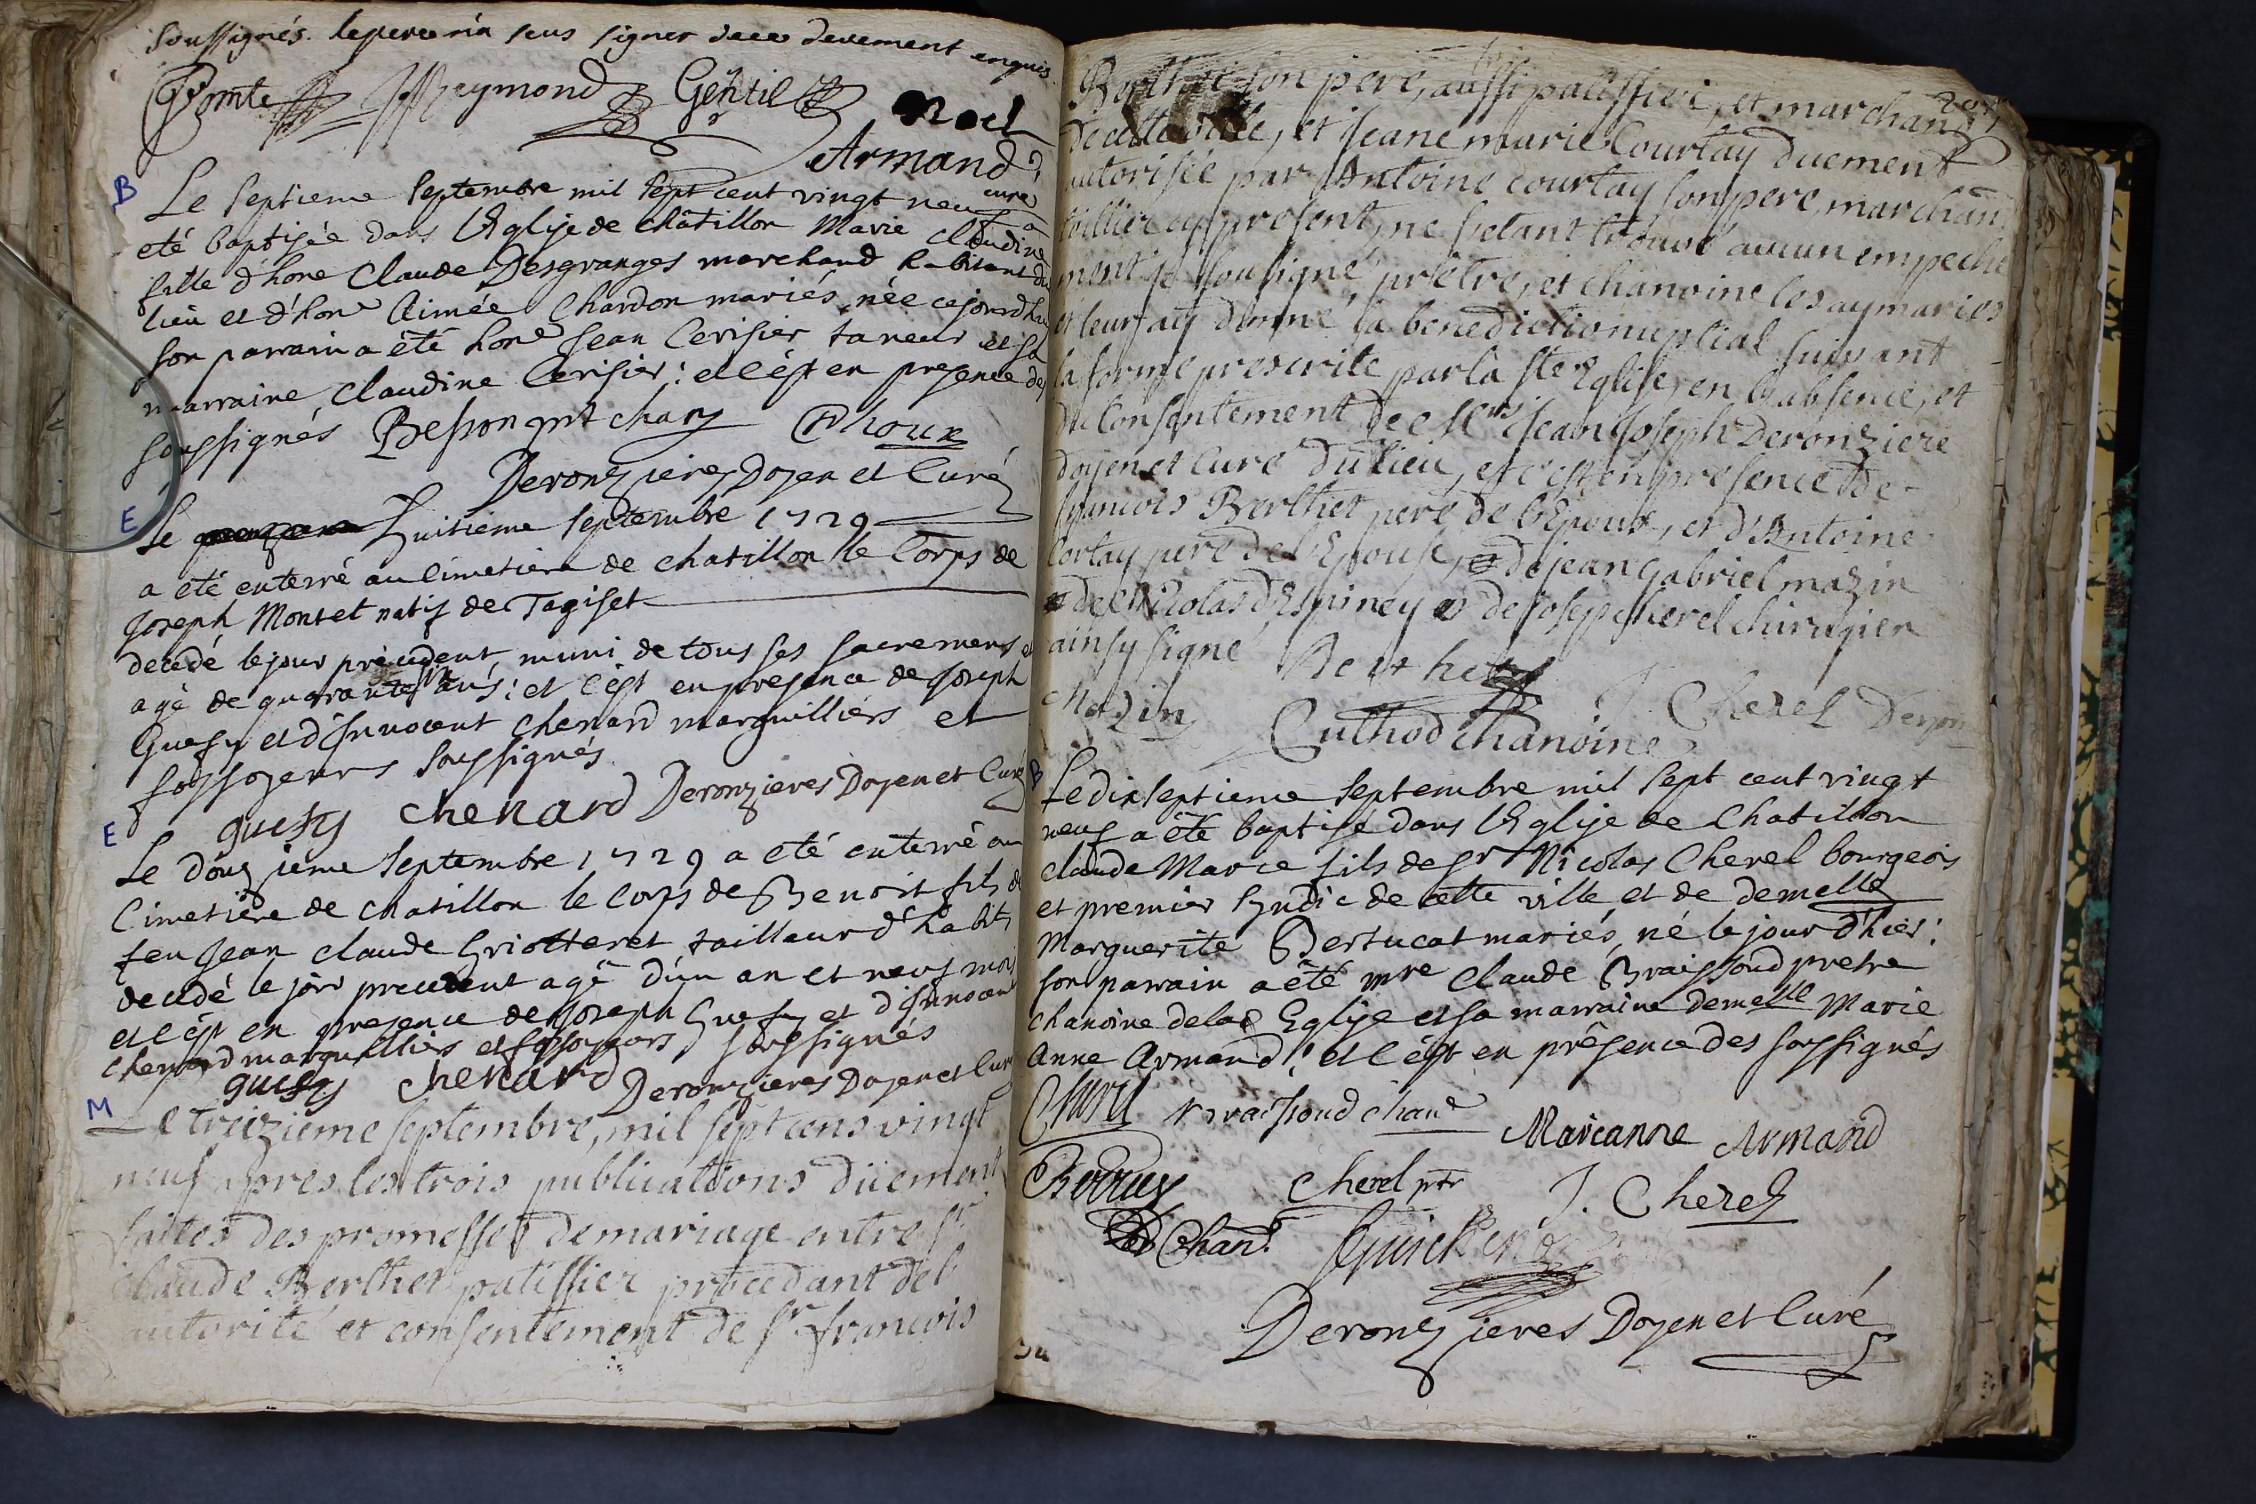 soussignés. le pere n'a sceu signer de ce deuement enquis.
Comte Raymond Gentil Noel
Armand
curé
B
Le septieme septembre mil sept cent vingt neuf a
eté baptisée dans l'Eglise de châtillon Marie Claudine
fille d'hone Claude Desgranges marchand habitant du
lieu et d'hone Aimée Chardon mariés, née cejourdhui
son parrain a été hone Jean Cerisier taneur et sa
marraine Claudine Cerisier: et c'est en presence des
soussignés Besson chan
Deronzieres Doyen et Curé
E
Le huitieme septembre 1729
a été enterré au Cimetiere de chatillon le Corps de
Joseph Montet natif de Tagiset
decedé le jour précédent muni de tous ses sacremens et
agé de quarante ans: et c'est en presence de Joseph
Guesy et d'Innocent chenard marguilliers et
fossoyeurs soussignés.
guesy chenard Deronzieres Doyen et Curé
E
Le douzieme septembre 1729 a eté enterré au
Cimetiere de chatillon le Corps de Benoit fils de
feu Jean claude Griotteret taillaur d'habits
decedé le jour precedent agé d'un an et neuf mois
et c'est en presence de Joseph Guesy et d'Innocent
chenard marguilliers et fossoyeurs soussignés
guesy chenard Deronzieres Doyen et Curé
M
Le treizieme septembre, mil sept cens vingt
neuf apres les trois publications düement
faittes des promesses de mariage entre sr
claude Berthet patissier procedant de l'
autorité et consentement de sr francois
Berthet son pere, aussi patissier, et marchand
de cette ville, et Jeane marie Courtay duement
autorisée par Antoine courtay son pere, marchand
toillier cy present, ne s'etant trouvé aucun empeche
ment je sousigné, prêtre, et chanoine les ay mariés
et leur ay donné la benediction nuptial suivant
la forme prescrite par la ste Eglise, en l'absence, et
du Consentement de Mre Jean Joseph Deronziere
doyen et Curé du lieu, et c'est en presence de
francois Berthet pere de l'Epoux, et d'Antoine
Cortay pere de l'Epouse, de jean Gabriel mazin
de Nicolas d'Espiney de Joseph cherel chirugien
ainsy signé Berthet
Mazin J. Cherel
Cuthod chanoine
B
Le dixseptieme septembre mil sept cent vingt
neuf a été baptisé dans l'Eglise de Chatillon
claude Marie fils de sr Nicolas Cherel bourgeois
et premier syndic de cette ville et de demelle
Marguerite Bertucat mariés, né le jour d'hier:
son parrain a été mre Claude Braissoud pretre
chanoine de lad Eglise et sa marraine demelle Marie
Anne Armand: et c'est en présence des soussignés
Cherel Braissoud chane Marianne Armand
Cherel ptr J. Cherel
Chan. Guichenon
Deronzieres Doyen et Curé